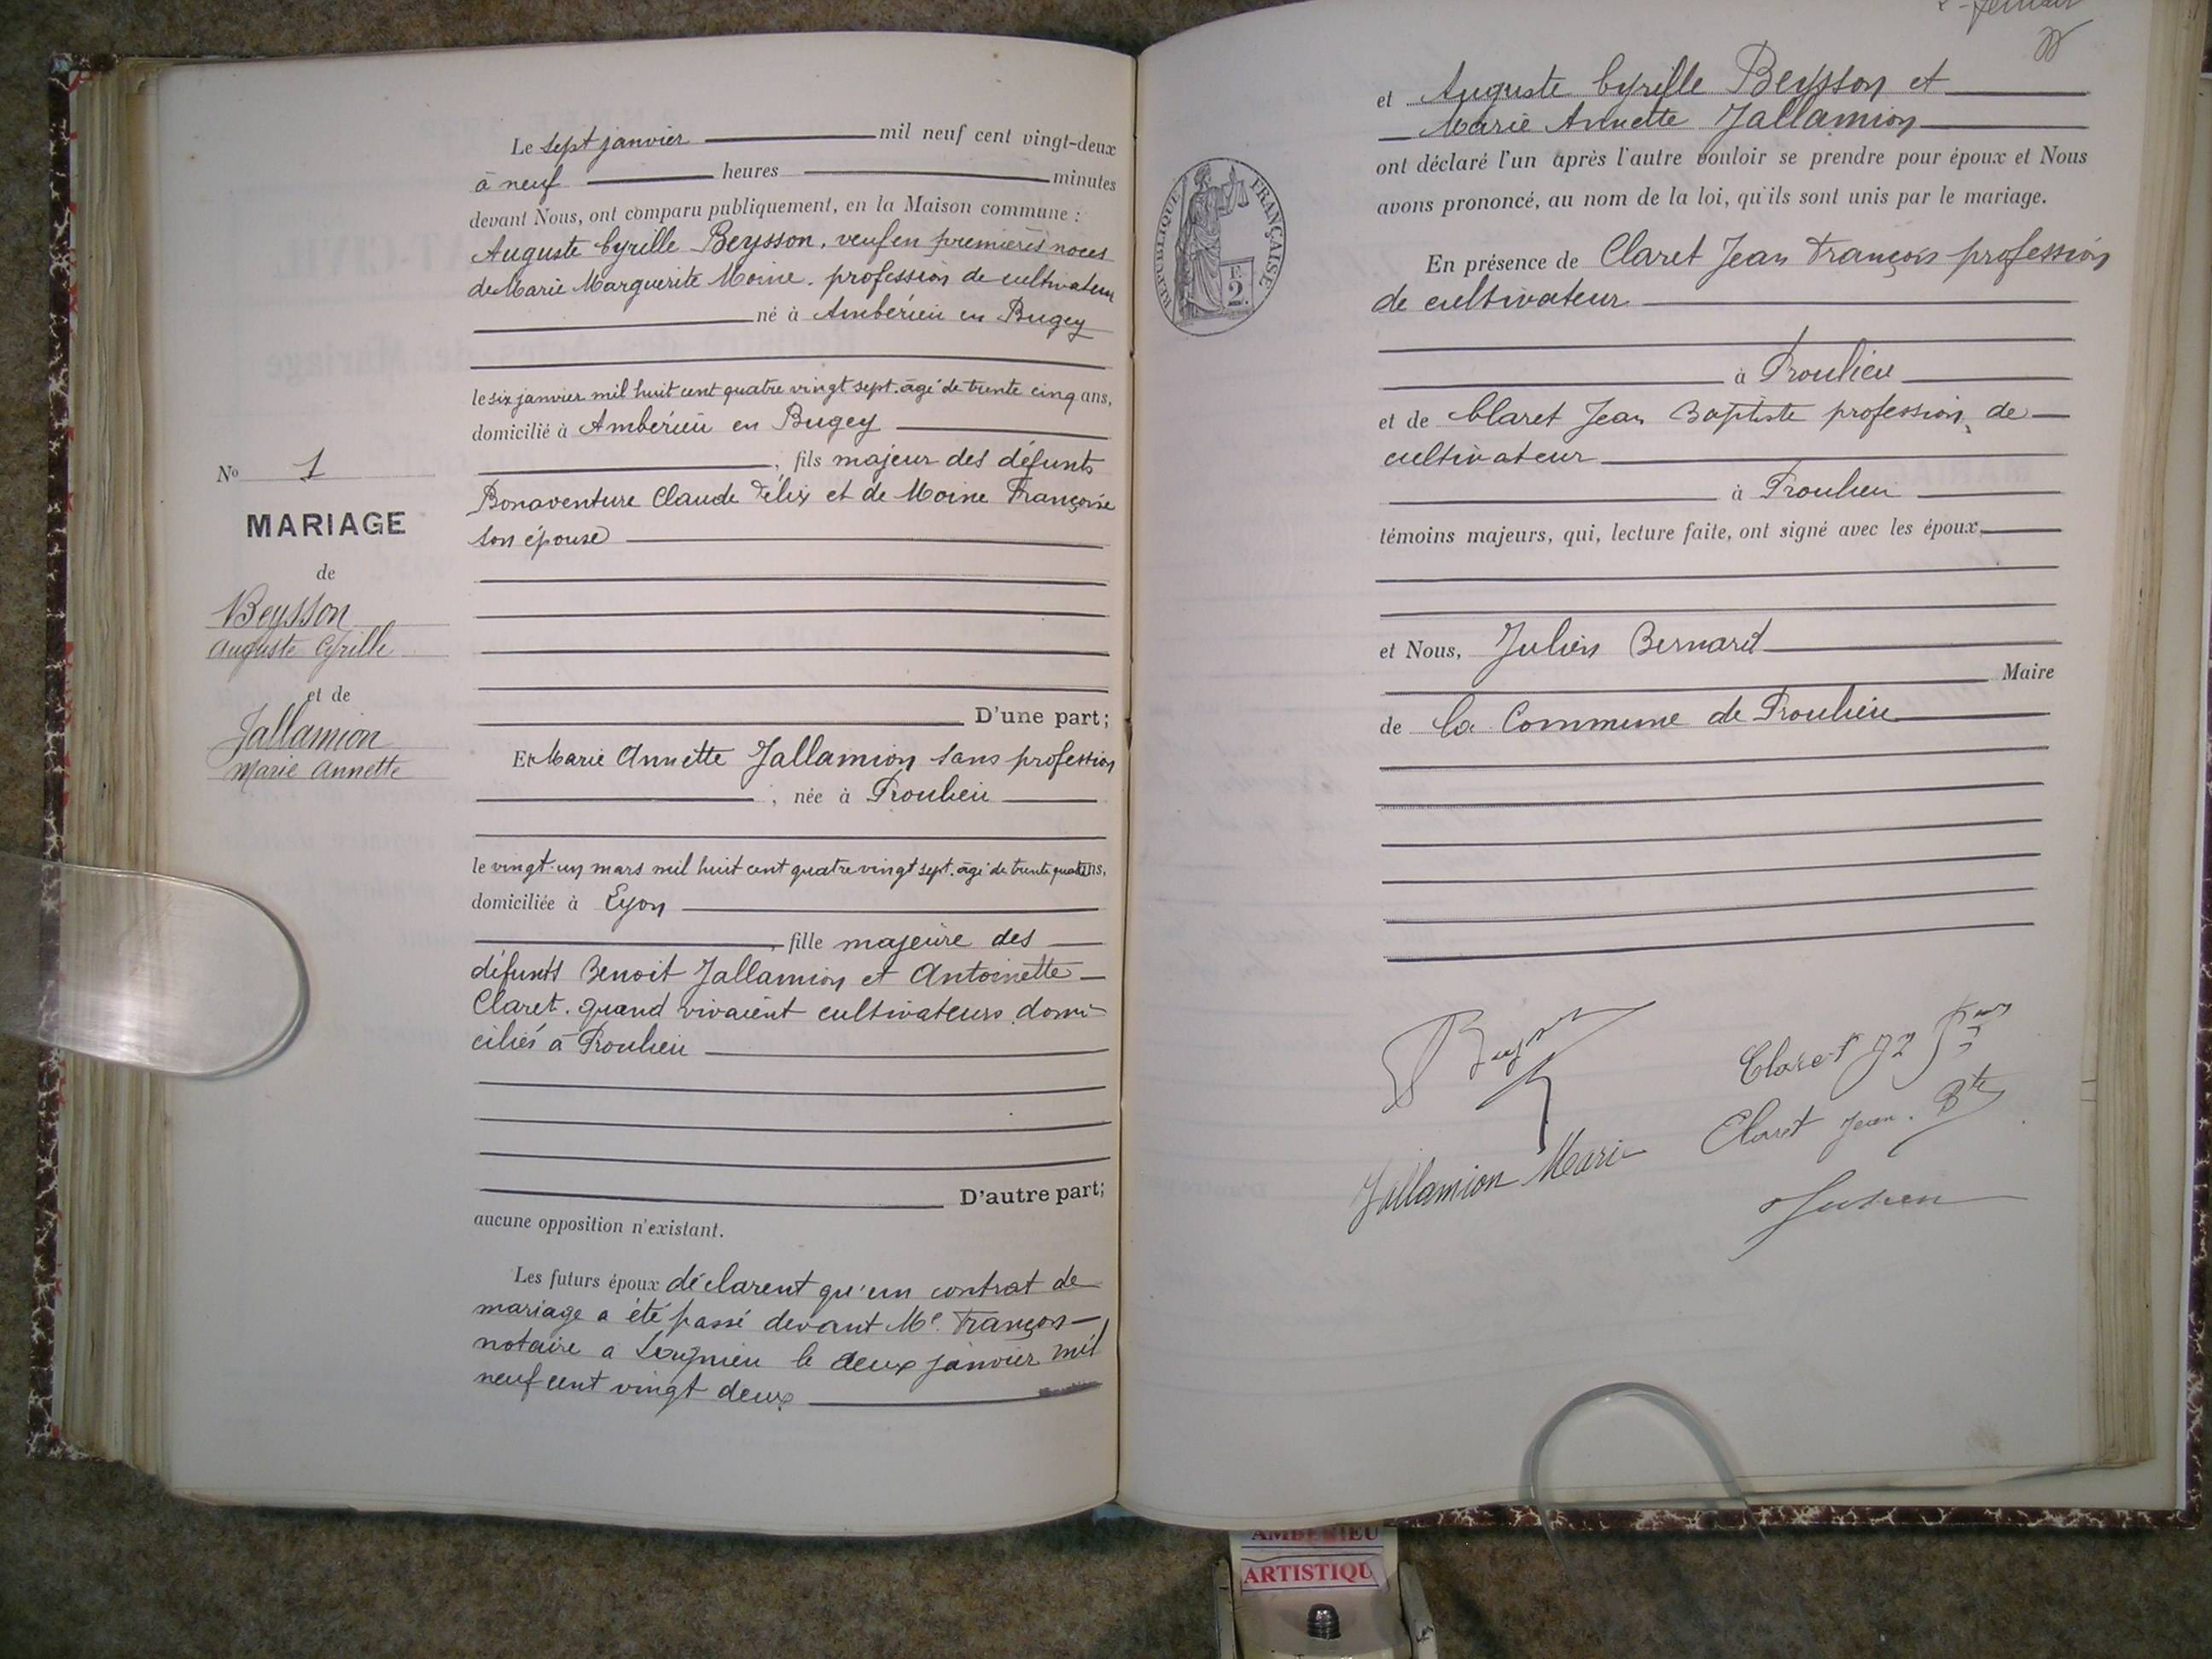 Le sept janvier mil neuf cent vingt-deux
à neuf heures minutes
devant Nous, ont comparu publiquement, en la Maison commune :
Auguste Cyrille Beysson, veuf en premières noces
de Marie Marguerite Moine. profession de cultivateur
né à Ambérieu en Bugey
le six janvier mil huit cent quatre vingt sept. âgé de trente cinq ans,
domicilié à Ambérieu en Bugey
, fils majeur des défunts
Bonaventure Claude Félix et de Moine Françoise
son épouse
No 1
MARIAGE
de
Beysson
Auguste Cyrille
et de
Jallamion
Marie Annette
D'une part;
Et Marie Annette Jallamion sans profession
, née à Proulieu
le vingt-un mars mil huit cent quatre vingt sept. âgé de trente quatre ans,
domiciliée à Lyon
, fille majeure des
défunts Benoit Jallamion et Antoinette
Claret. quand vivaient cultivateurs domi-
ciliés à Proulieu
D'autre part;
aucune opposition n'existant.
Les futurs époux déclarent qu'un contrat de
mariage a été passé devant Me. François
notaire a le deux janvier mil
neuf cent vingt deux
et Auguste Cyrille Beysson et
Marie Annette Jallamion
ont déclaré l'un après l'autre vouloir se prendre pour époux et Nous
avons prononcé, au nom de la loi, qu'ils sont unis par le mariage.
RÉPUBLIQUE FRANÇAISE
2
En présence de Claret Jean François profession
de cultivateur
à Proulieu
et de Claret Jean Baptiste profession de
cultivateur
à Proulieu
témoins majeurs, qui, lecture faite, ont signé avec les époux
et Nous, Julien Bernard
Maire
de la Commune de Proulieu
Claret
Claret Jean Bte
Jallamion Marie
Julien
AMBERIEU
ARTISTIQU